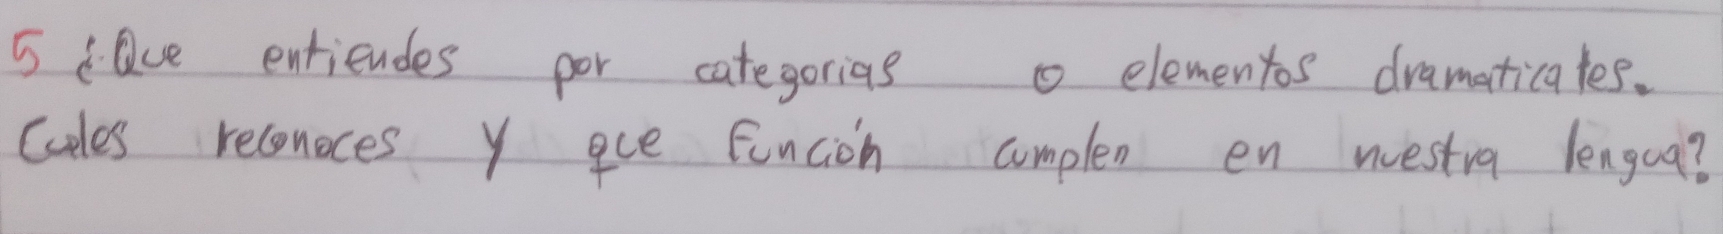 5 ¿Que entiendes por categorias o elementos dramaticales.
Cuales reconoces y que función cumplen en nuestra lengua?